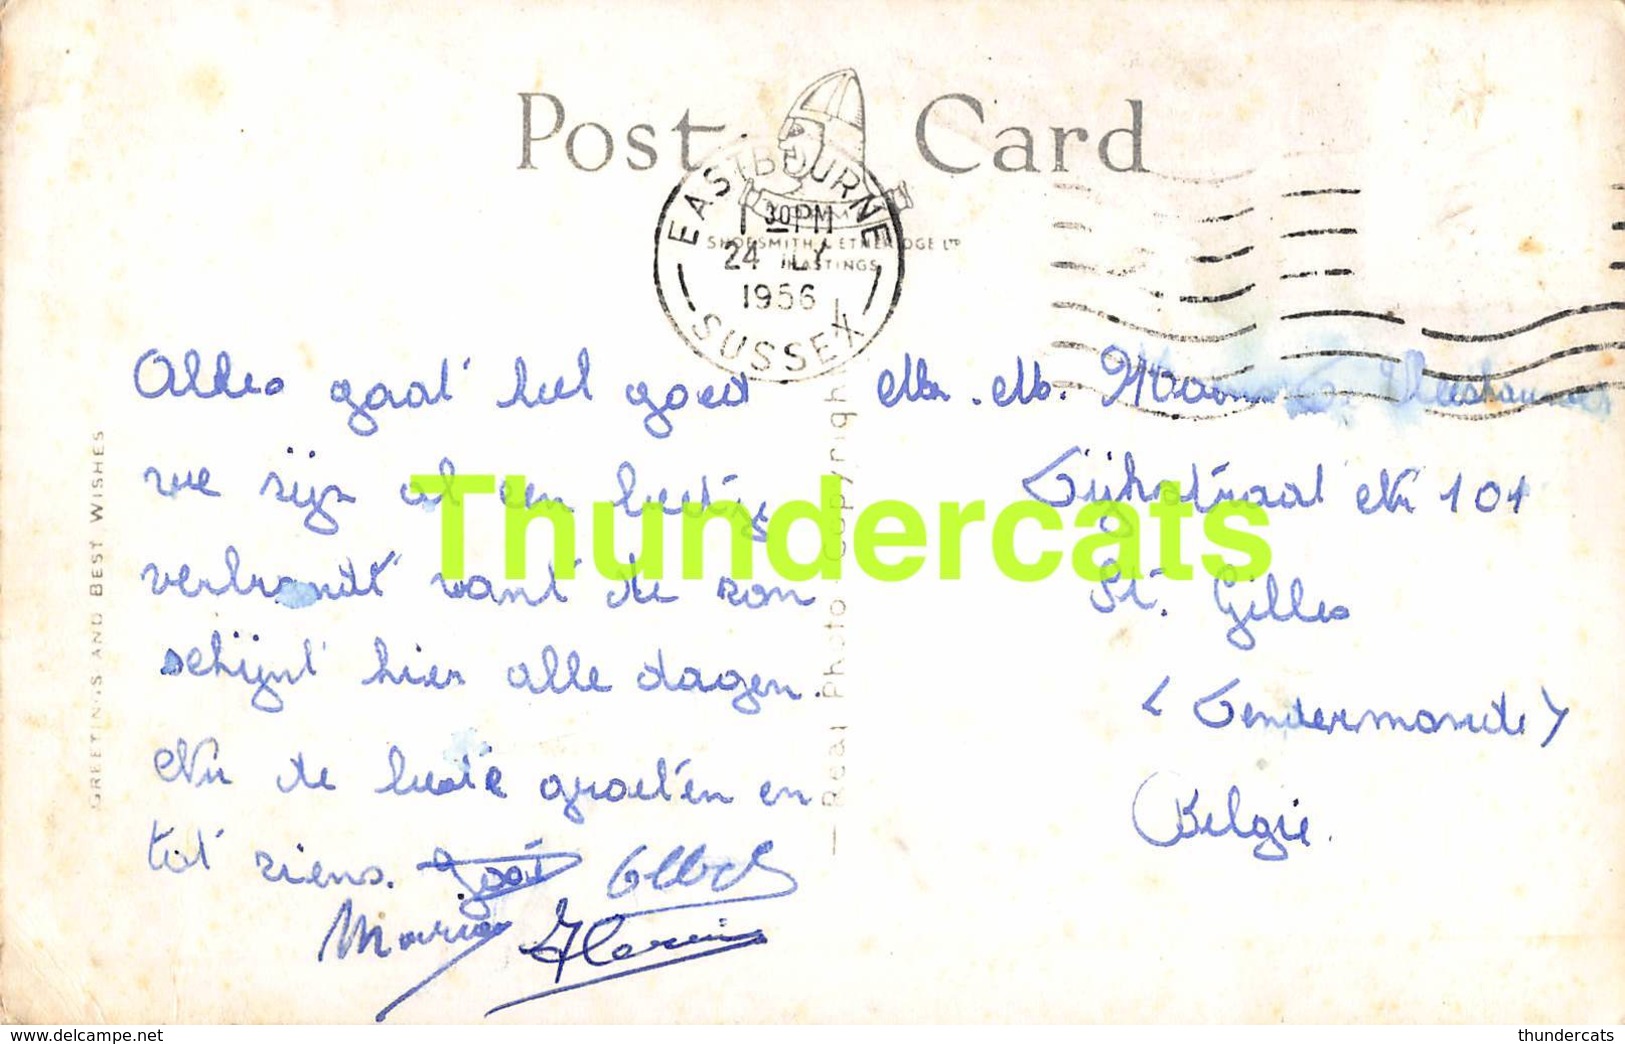 Post Card
EASTBOURNE
1 30 PM
24 JLY
1956
SUSSEX
SHOESMITH & ETHERIDGE LTD
HASTINGS
GREETINGS AND BEST WISHES
Real Photo Copyright
Alles gaat heel goed
we zijn al een beetje
verbrandt want de zon
schijnt hier alle dagen.
Nu de beste groeten en
tot ziens.
Maria
Mr. M.
Dijkstraat Nr 101
St. Gilles
(Dendermonde)
België.
Thundercats
https://www.delcampe.net/en_US/collectibles/store/thundercats
thundercats